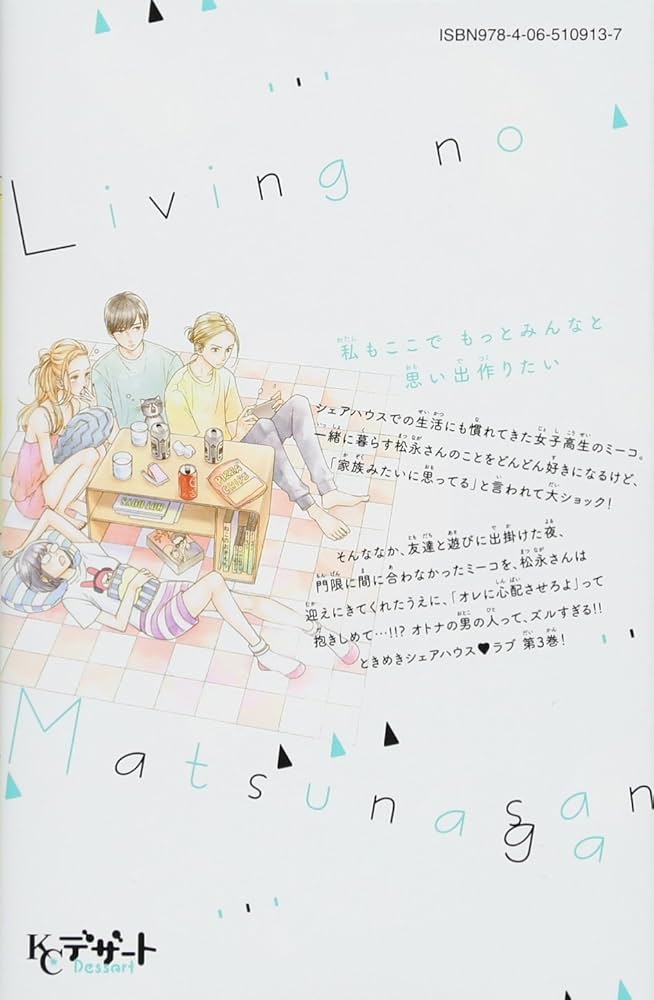 ISBN978-4-06-510913-7
Living no
私もここで もっとみんなと
思い出作りたい
シェアハウスでの生活にも慣れてきた女子高生のミーコ。
一緒に暮らす松永さんのことをどんどん好きになるけど、
「家族みたいに思ってる」と言われて大ショック!
そんななか、友達と遊びに出掛けた夜、
門限に間に合わなかったミーコを、松永さんは
迎えにきてくれたうえに、「オレに心配させろよ」って
抱きしめて…!!? オトナの男の人って、ズルすぎる!!
ときめきシェアハウス♥ラブ 第3巻!
Matsunagasan
KCデザート
Dessert